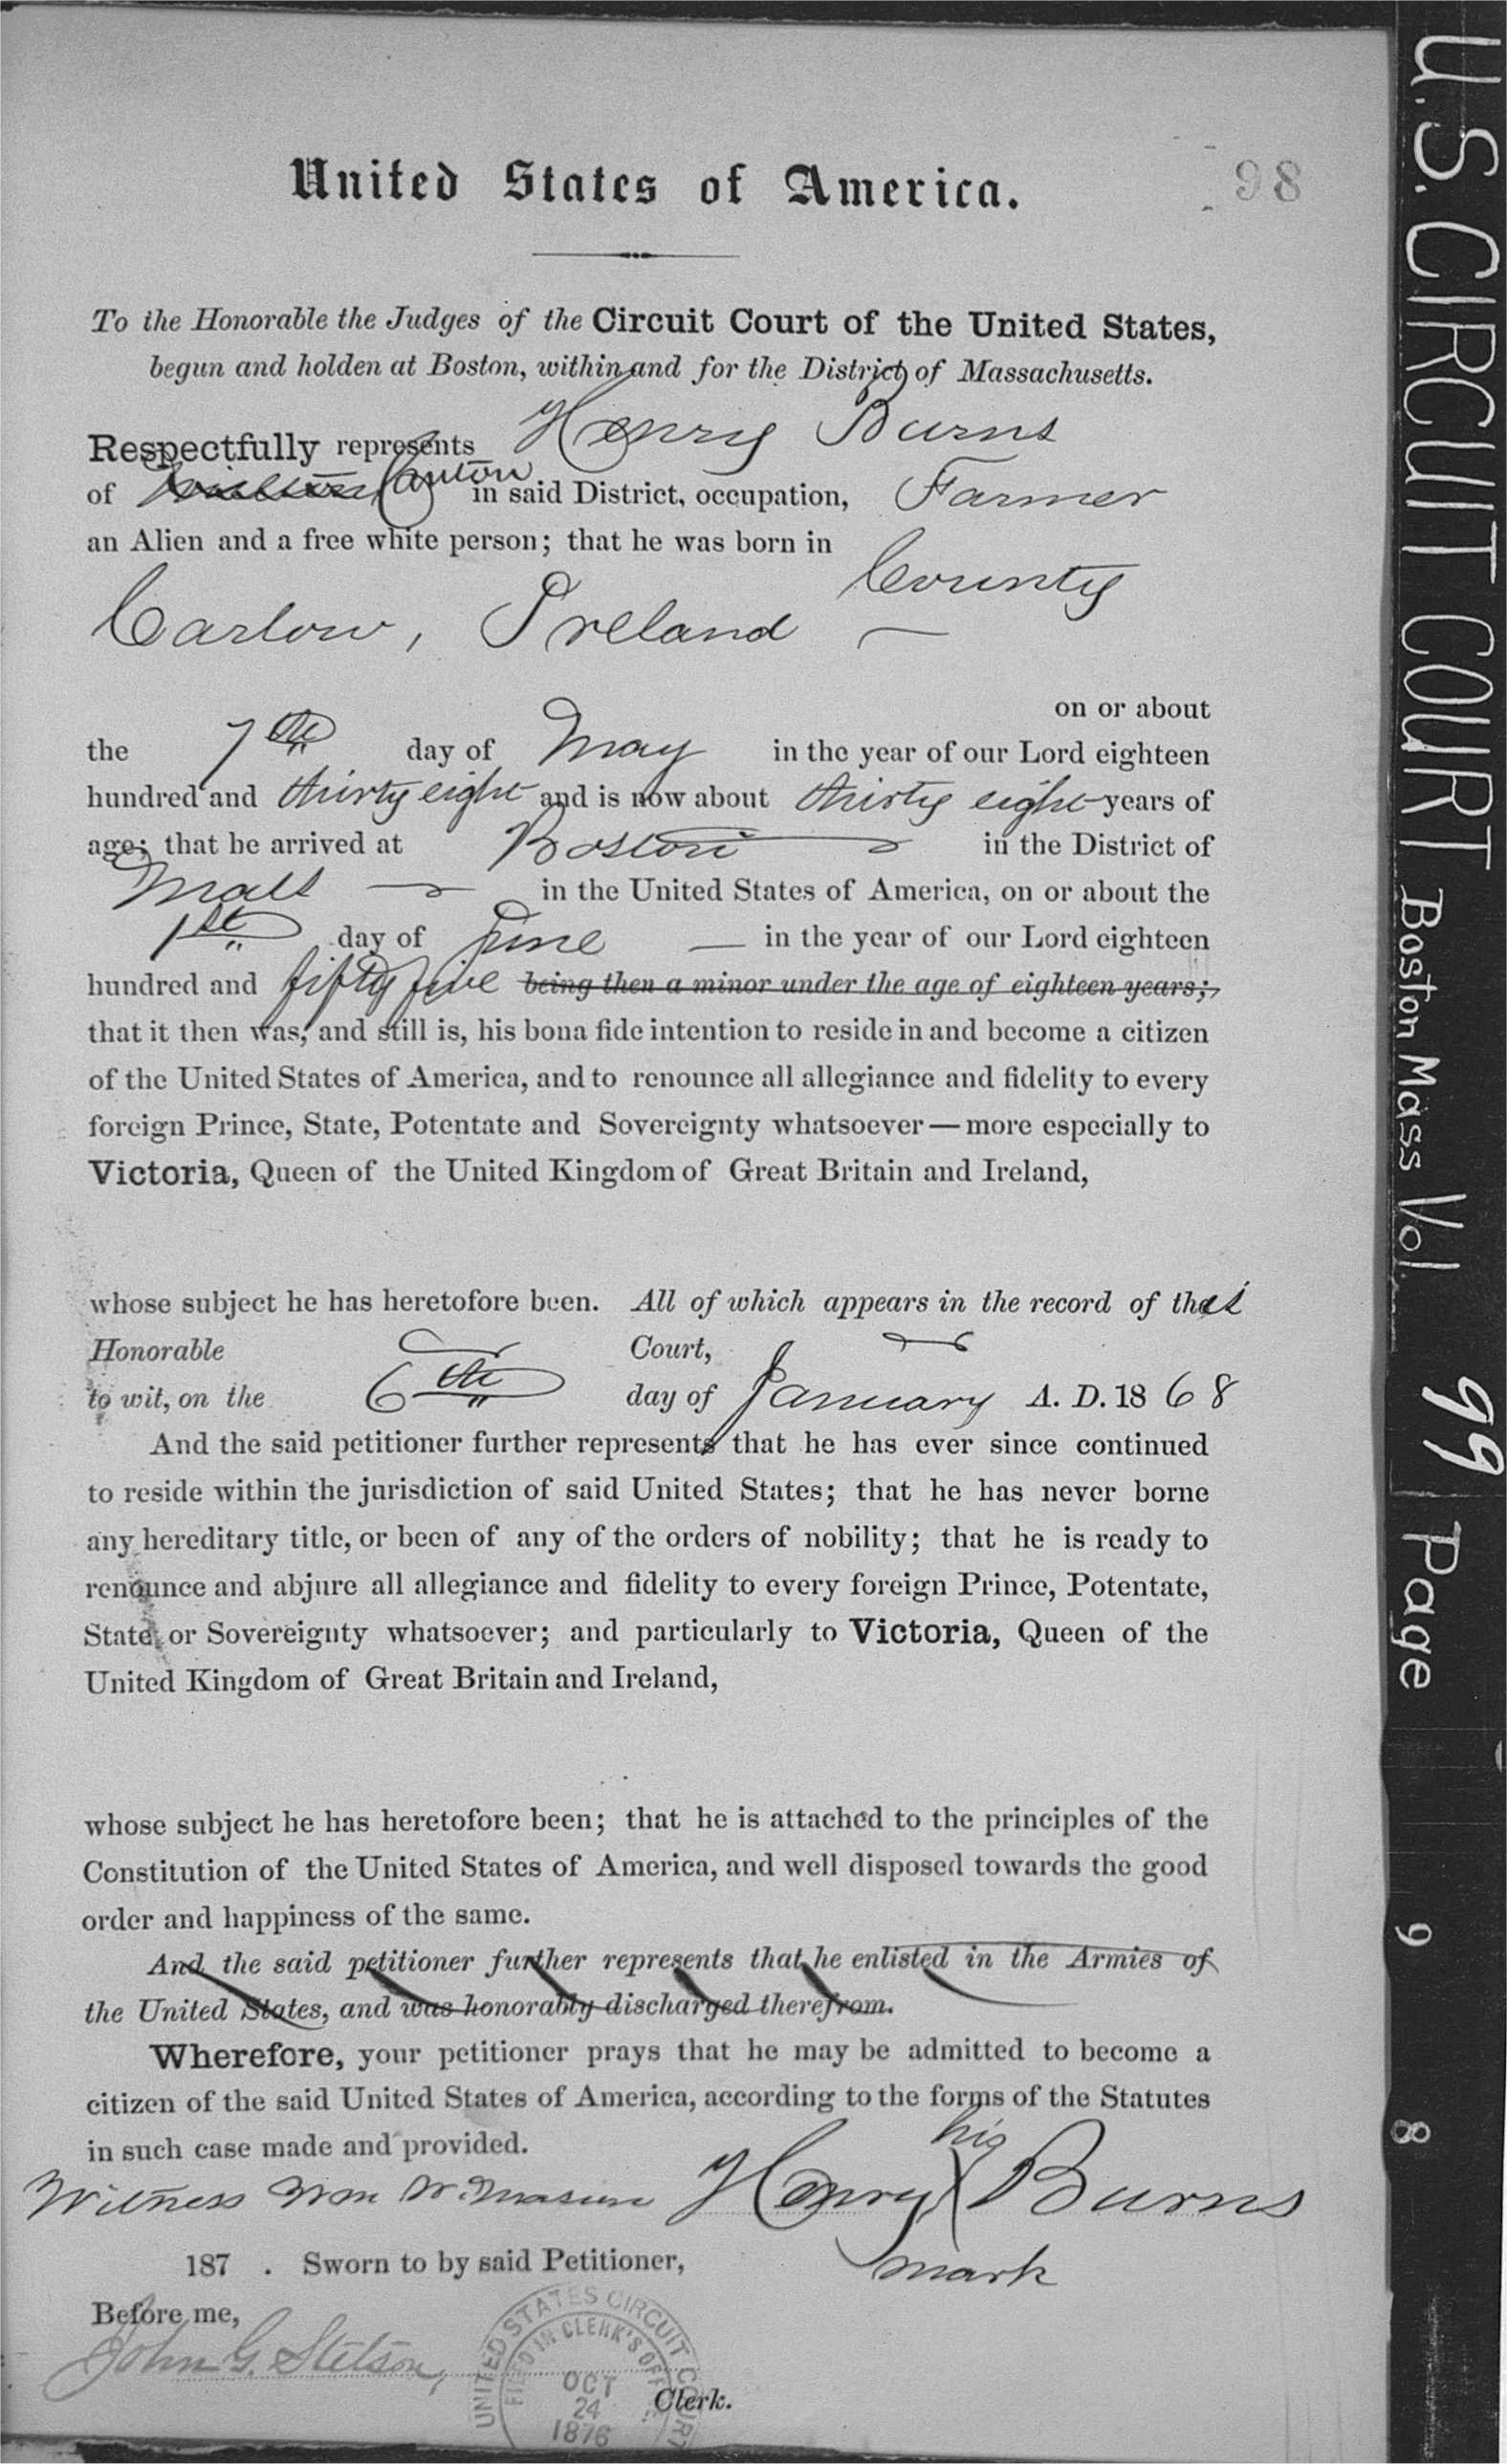 United States of America.
98
To the Honorable the Judges of the Circuit Court of the United States,
begun and holden at Boston, within and for the District of Massachusetts.
Respectfully represents Henry Burns
of Canton in said District, occupation, Farmer
an Alien and a free white person; that he was born in County
Carlow, Ireland —
on or about
the 7th day of May in the year of our Lord eighteen
hundred and thirty eight and is now about thirty eight years of
age; that he arrived at Boston in the District of
Mass in the United States of America, on or about the
1st day of June — in the year of our Lord eighteen
hundred and fifty five being then a minor under the age of eighteen years;
that it then was, and still is, his bona fide intention to reside in and become a citizen
of the United States of America, and to renounce all allegiance and fidelity to every
foreign Prince, State, Potentate and Sovereignty whatsoever — more especially to
Victoria, Queen of the United Kingdom of Great Britain and Ireland,
whose subject he has heretofore been. All of which appears in the record of that
Honorable Court,
to wit, on the 6th day of January A. D. 1868
And the said petitioner further represents that he has ever since continued
to reside within the jurisdiction of said United States; that he has never borne
any hereditary title, or been of any of the orders of nobility; that he is ready to
renounce and abjure all allegiance and fidelity to every foreign Prince, Potentate,
State or Sovereignty whatsoever; and particularly to Victoria, Queen of the
United Kingdom of Great Britain and Ireland,
whose subject he has heretofore been; that he is attached to the principles of the
Constitution of the United States of America, and well disposed towards the good
order and happiness of the same.
And the said petitioner further represents that he enlisted in the Armies of
the United States, and was honorably discharged therefrom.
Wherefore, your petitioner prays that he may be admitted to become a
citizen of the said United States of America, according to the forms of the Statutes
in such case made and provided.
his
Witness Wm W. Mason Henry X Burns
mark
187 . Sworn to by said Petitioner,
Before me,
John G. Stetson,
Clerk.
UNITED STATES CIRCUIT COURT
FILED IN CLERK'S OFF
OCT
24
1876
U.S. CIRCUIT COURT Boston Mass Vol 99 Page 98